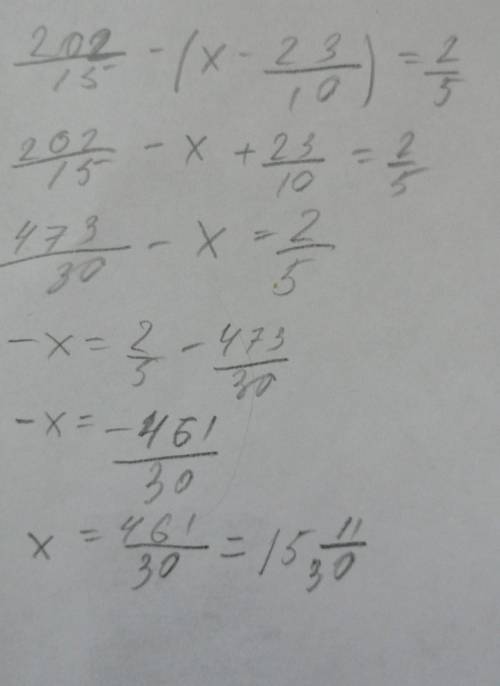 202/15 - (x - 23/10) = 2/5
202/15 - x + 23/10 = 2/5
473/30 - x = 2/5
-x = 2/5 - 473/30
-x = -461/30
x = 461/30 = 15 11/30